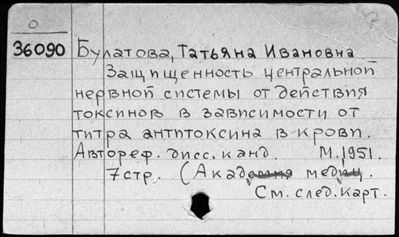 О
36090 Булатова, Татьяна Ивановна
Защищенность центральной
нервной системы от действия
токсинов в зависимости от
титра антитоксина в крови.
Автореф. дисс. канд. М. 1951.
7 стр. (Академия медиц.
См. след. карт.